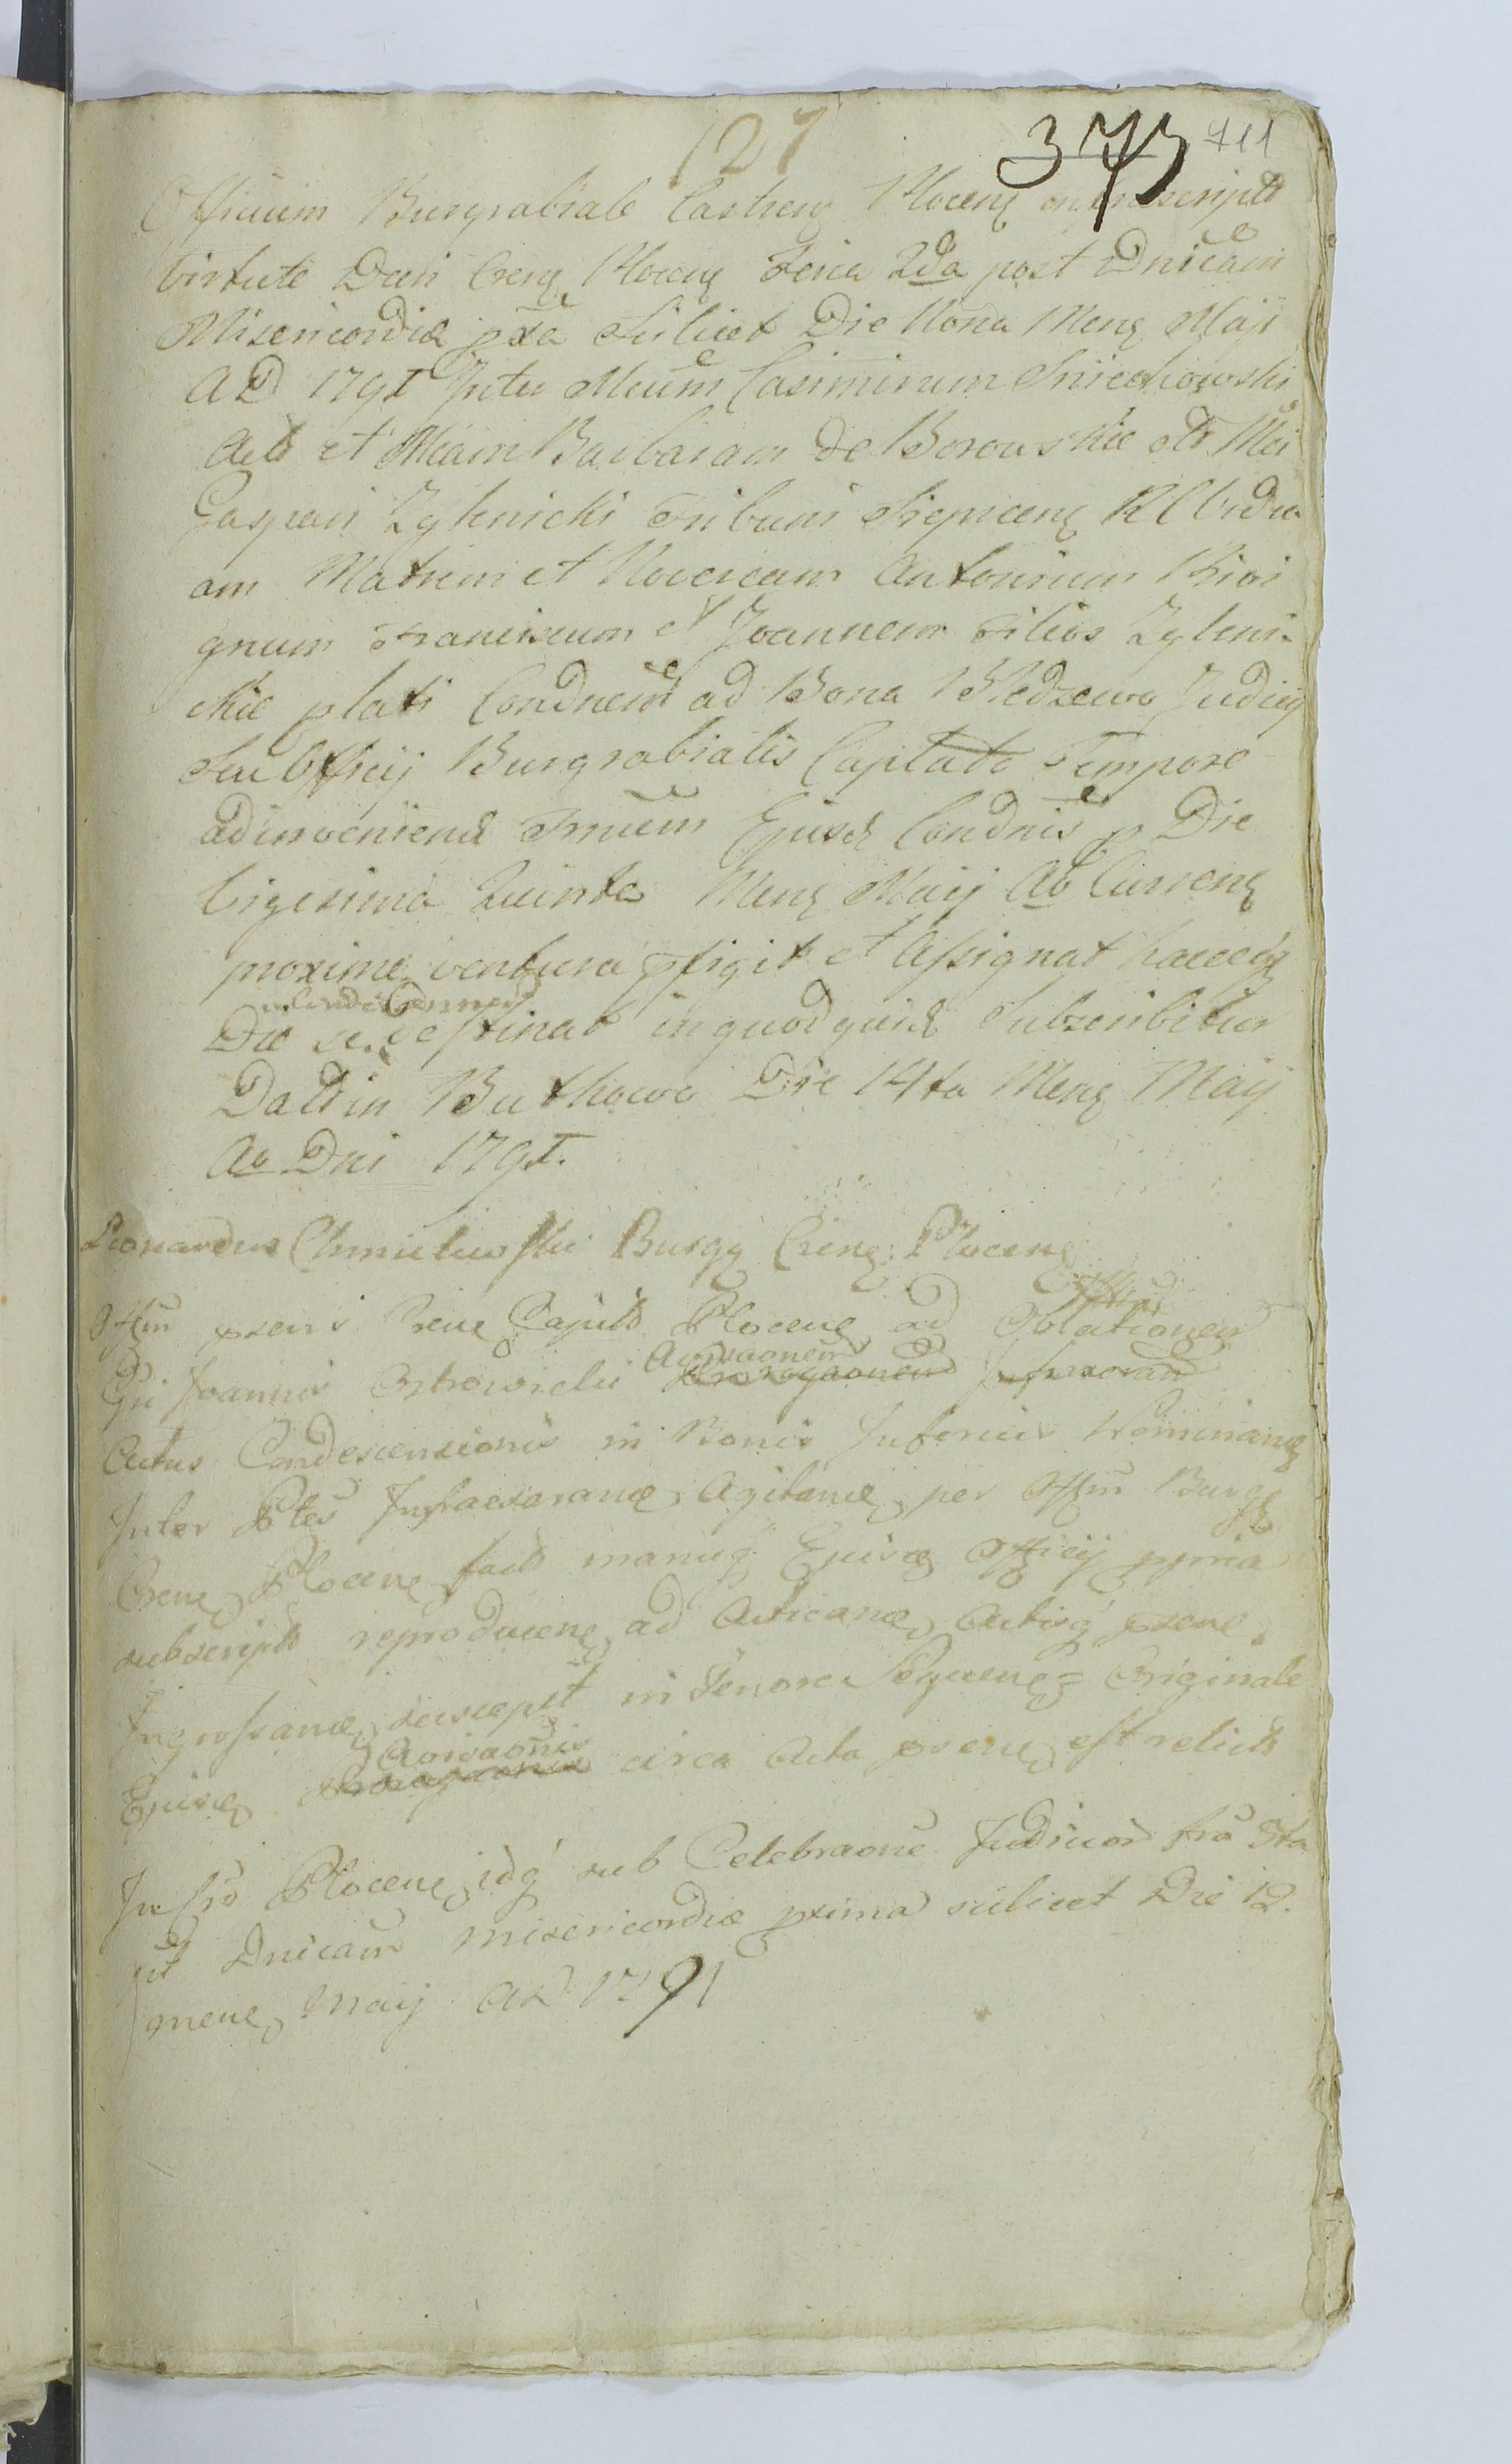 127 373 711
Officium Burgrabiale Castren Plocen
virtute Decri Cren Plocen Feria 2da post Dnicam
Misericordiæ pxa Scilicet Die Nona Mens Maji
AD 1791 Inter Mcum Casimirum Sniechowski
Act et Mcam Barbaram de Borowskie olt Mci
Gaspari Zglenicki Tribuni Sierpcens Rl Vidu
am Matrem et Novercam Antonium Privi
gnum Franciscum et Joannem Filios Zgleni
ckie plati Condnem ad Bona Bledzewo Judicij
Sui Officij Burgrabialis Captato Tempore
adinveniend Trnum Ejusd Condnis p Die
Vigesima Quinta Mens Maij Ao Curren
proxime ventura pfigit et Assignat
Die se destinat inquodquid Subscribitur
Datt in Buthowo Die 14ta Mens Maij
Ao Dni 1791.
Leonardus Chmielewski Burgg Crens Plocens
Offm psens Crens Capit Plocens ad Officiosam Oblationem
Gsi Joannis Ostrowicki Avisaonem Infranoran
Actus Condescensionis in Bonis Inferius Nominand
Inter Ptes Infraexarand Agitand per Offm Burgg
Crens Plocens fact manuq Ejusd Officij ppria
subscript reproducens ad Acticand Actisq psens
Ingrossand suscepit in tenorem Sequens = Originale
Ejusd Avisaonis circa Acta psens est relict
In Cro Plocens idq sub Celebraone Judicior fra 5ta
pt Dnicam Misericordiæ pxima scilicet Die 12.
mens Maij AD 1791